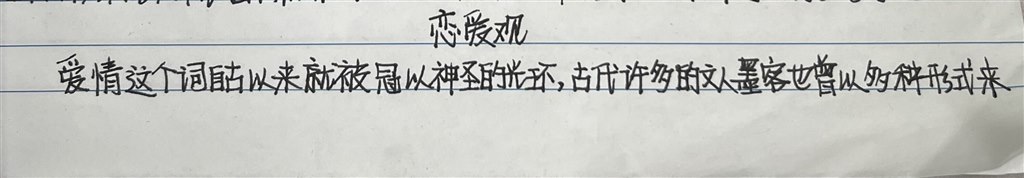 恋爱观
爱情这个词自古以来就被冠以神圣的光环,古代许多的文人墨客也曾以多种形式来